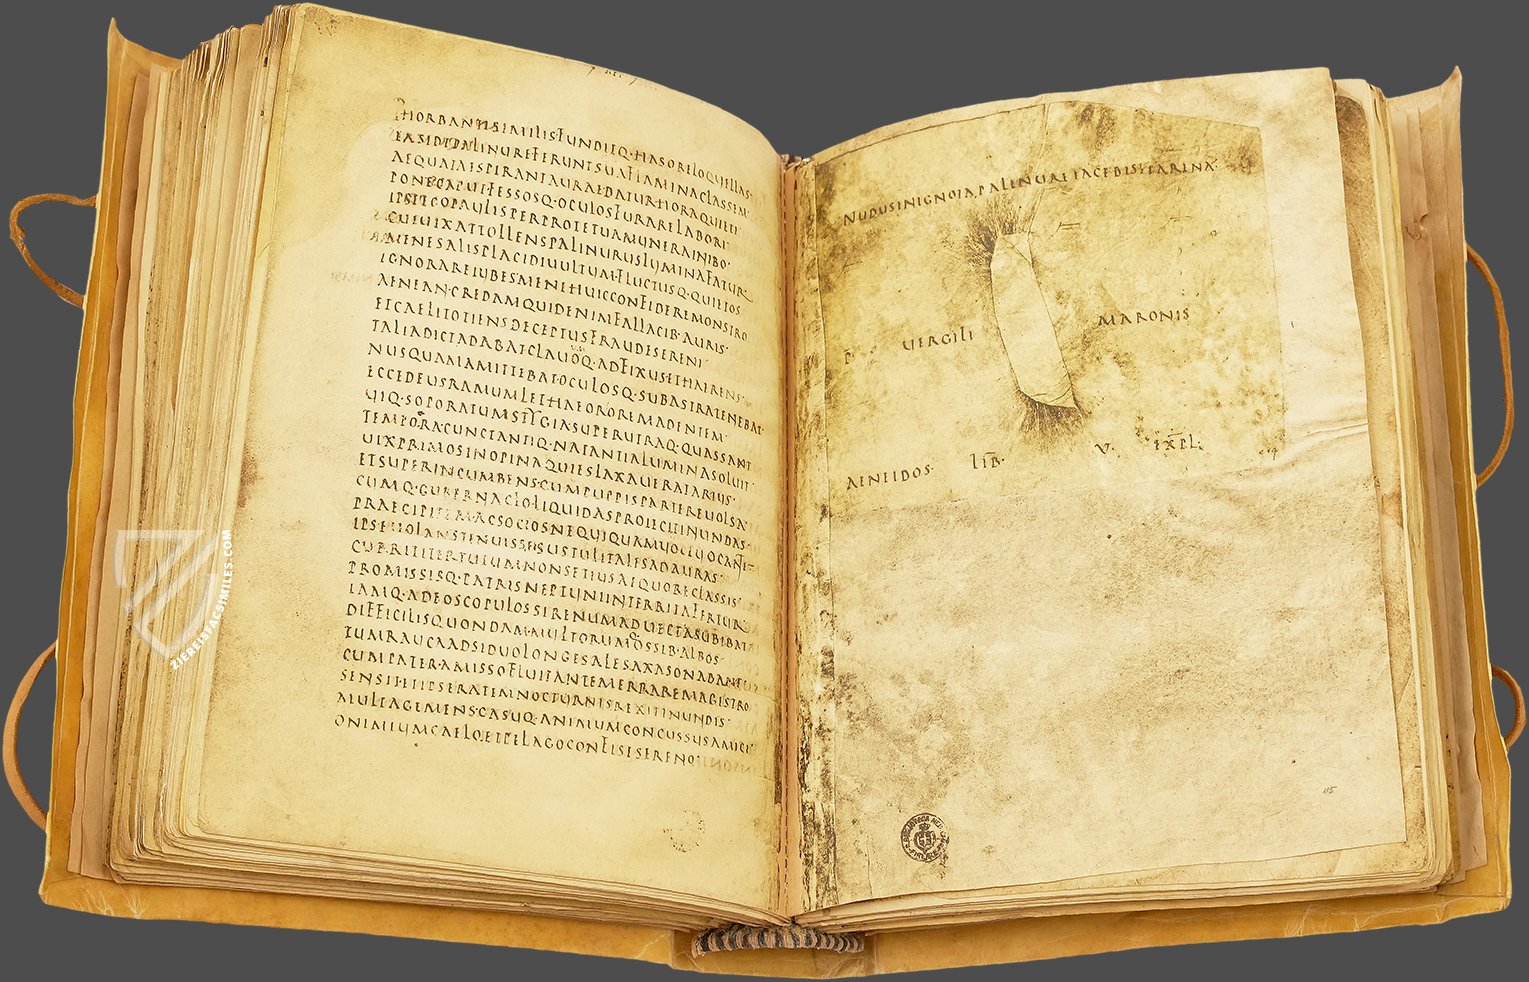 PHORBANTISIMILISFUNDITQ·HASORELOQUELLAS·
IASIDEPALINUREFERUNTSUAFLAMINACLASSEM
AEQUATAESPIRANTAURAEDATURHORAQUIETI
PONECAPUTFESSOSQ·OCULOSFURARELABORI·
IPSEEGOPAULISPERPROTETUAMUNERAINIBO·
CUIUIXATTOLLENSPALINURUSLUMINAFATUR
MENESALISPLACIDIUULTUMFLUCTUSQ·QUIETOS
IGNORAREIUBESMENEHUICCONFIDEREMONSTRO
AENEAN·CREDAMQUIDENIMFALLACIB·AURIS·
ETCAELITOTIENSDECEPTUSFRAUDESERENI
TALIADICTADABATCLAUOQ·ADFIXUSETHAERENS
NUSQUAMAMITTEBATOCULOSQ·SUBASTRATENEBAT·
ECCEDEUSRAMUMLETHAEOROREMADENTEM
UIQ·SOPORATUMSTYGIASUPERUTRAQ·QUASSANT
TEMPORACUNCTANTIQ·NATANTIALUMINASOLUIT·
UIXPRIMOSINOPINAQUIESLAXAUERATARTUS·
ETSUPERINCUMBENS·CUMPUPPISPARTEREUOLSA
CUMQ·GUBERNACLOLIQUIDASPROIECITINUNDAS·
PRAECIPITEMACSOCIOSNEQUIQUAMUOCEUOCANTE·
IPSEUOLANSTENUISSESUSTULITALESADAURAS
CURRITITERTUTUMNONSETIUSAEQUORECLASSIS
PROMISSISQ·PATRISNEPTUNIINTERRITAFERTUR
IAMQ·ADEOSCOPULOSSIRENUMADUECTASUBIBAT
DIFFICILISQUONDAM·MULTORUMQOSSIB·ALBOS
TUMRAUCAADSIDUOLONGESALESAXASONABANT
CUMPATERAMISSOFLUITANTEMERRAREMAGISTRO
SENSITETIPSERATEMNOCTURNISREXITINUNDIS·
MULTAGEMENS·CASUQ·ANIMUMCONCUSSUSAMICI
ONIMIUMCAELOETPELAGOCONFISESERENO
NUDUSINIGNOTAPALINUREIACEBISHARENA·
P· UERGILI MARONIS
AENEIDOS· LIB· V· EXPL·
115
ZIEREISFACSIMILES.COM